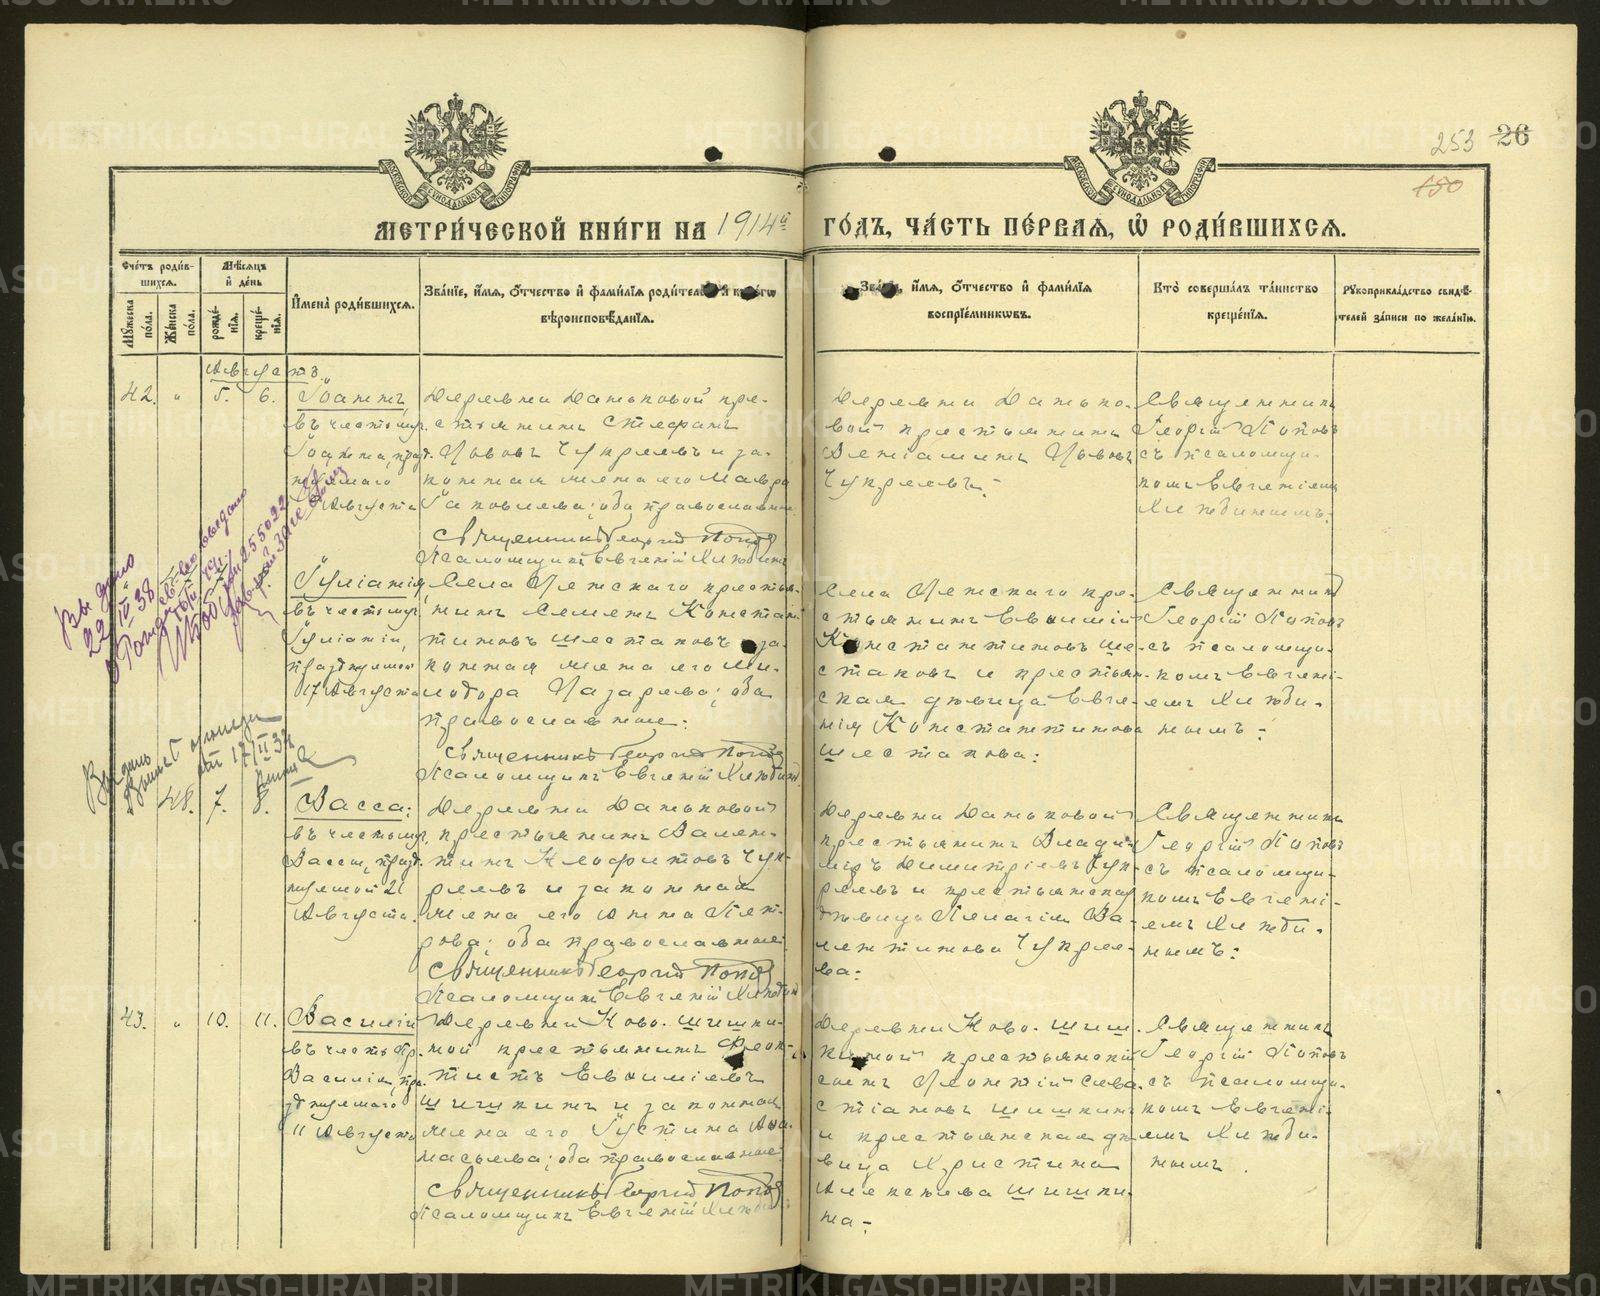 253 26
150
МОСКОВСКОЙ СѴНОДАЛЬНОЙ ТИПОГРАФІИ
МОСКОВСКОЙ СѴНОДАЛЬНОЙ ТИПОГРАФІИ
МЕТРИ́ЧЕСКОЙ КНИ́ГИ НА 1914й ГО́ДЪ, ЧА́СТЬ ПЕ́РВАЯ, Ѡ҆ РОДИ́ВШИХСЯ.
Сче́тъ роди́в-
шихся.
Мѣ́сяцъ
и҆ де́нь
Мꙋ́жеска
по́ла.
Же́нска
по́ла.
рожде́-
нїя.
креще́-
нїя.
И҆мена̀ роди́вшихся.
Зва́нїе, и҆́мя, ѻ҆́тчество и҆ фами́лїя роди́телей и҆ како́гѡ
вѣроисповѣ́данїя.
Зва́нїе, и҆́мя, ѻ҆́тчество и҆ фами́лїя
воспрїе́мниковъ.
Кто̀ соверша́лъ та́инство
креще́нїя.
Рꙋкоприкла́дство свидѣ́-
телей за́писи по жела́нїю.
Августъ.
42. „ 5. 6.
Іоаннъ,
въ честь муч.
Іоанна, празд.
нуемаго
Августа
Деревни Даньковой кре-
стьянинъ Стефанъ
Львовъ Чупреевъ и за-
конная жена его Мавра
Іаковлева; оба православные.
Священникъ Георгій Поповъ
Псаломщикъ Евгеній Хлюбинъ
Деревни Данько-
вой крестьянинъ
Веніаминъ Львовъ
Чупреевъ.
Священникъ
Георгій Поповъ
съ псаломщи-
комъ Евгеніемъ
Хлюбинымъ.
Іуліанія,
въ честь муч.
Іуліаніи,
празднуемой
17 Августа
Села Ирбетскаго кресть-
нинъ Семенъ Констан-
тиновъ Шестаковъ и за-
конная жена его Ми-
лодора Назарова; оба
православные.
Священникъ Георгій Поповъ
Псаломщикъ Евгеній Хлюбинъ
кре-
стьянинъ Евфимій
Константиновъ Ше-
стаковъ и крестьян-
ская дѣвица Евге-
нія Константинова
Шестакова:
Священникъ
Георгій Поповъ
съ псаломщи-
комъ Евгені-
емъ Хлюби-
нымъ:
48. 7. 8.
Васса:
въ честь муч.
Вассы, празд-
нуемой 21
Августа.
Деревни Даньковой
крестьянинъ Вален-
тинъ Неофитовъ Чуп-
реевъ и законная
жена его Анна Пет-
рова; оба православные.
Священникъ Георгій Поповъ
Псаломщикъ Евгеній Хлюбинъ
Деревни Даньковой
крестьянинъ Влади-
міръ Димитріевъ Чуп-
реевъ и крестьянская
дѣвица Пелагія Ва-
лентинова Чупрее-
ва:
Священникъ
Георгій Поповъ
съ псаломщи-
комъ Евгені-
емъ Хлюби-
нымъ:
43. „ 10. 11.
Василій
въ честь пр.
Василія, пра-
зднуемаго
11 Августа
Деревни Ново-Шишки-
ной крестьянинъ Феок-
тистъ Евфиміевъ
Шишкинъ и законная
жена его Іустина Афа-
насьева; оба православные.
Священникъ Георгій Поповъ
Псаломщикъ Евгеній Хлюбинъ
Деревни Ново-Шиш-
киной крестьянскій
сынъ Леонтій Сева-
стіановъ Шишкинъ
и крестьянская дѣ-
вица Христина
Алексѣева Шишки-
на:
Священникъ
Георгій Поповъ
съ псаломщи-
комъ Евгені-
емъ Хлюби-
нымъ.
Выдано
22/IV 38
METRIKI.GASO-URAL.RU